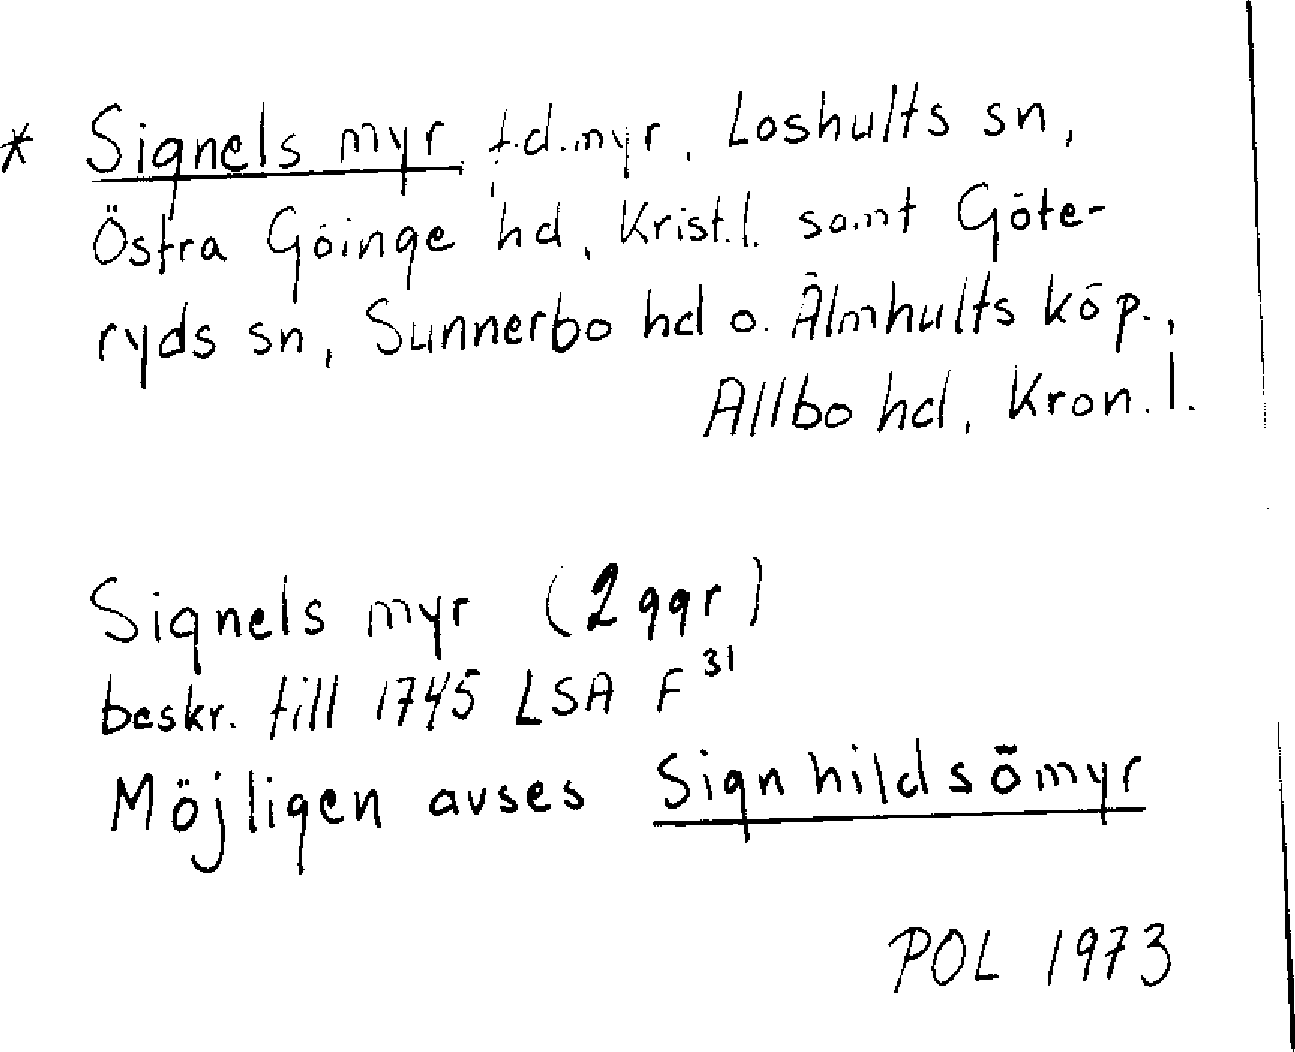 * Signels myr f.d. myr, Loshults sn,
Östra Göinge hd, Krist.l. samt Göte-
ryds sn, Sunnerbo hd o. Älmhults köp.,
Allbo hd, Kron.l.
Signels myr (2 ggr)
beskr. till 1745 LSA F 31
Möjligen avses Signhildsömyr
POL 1973